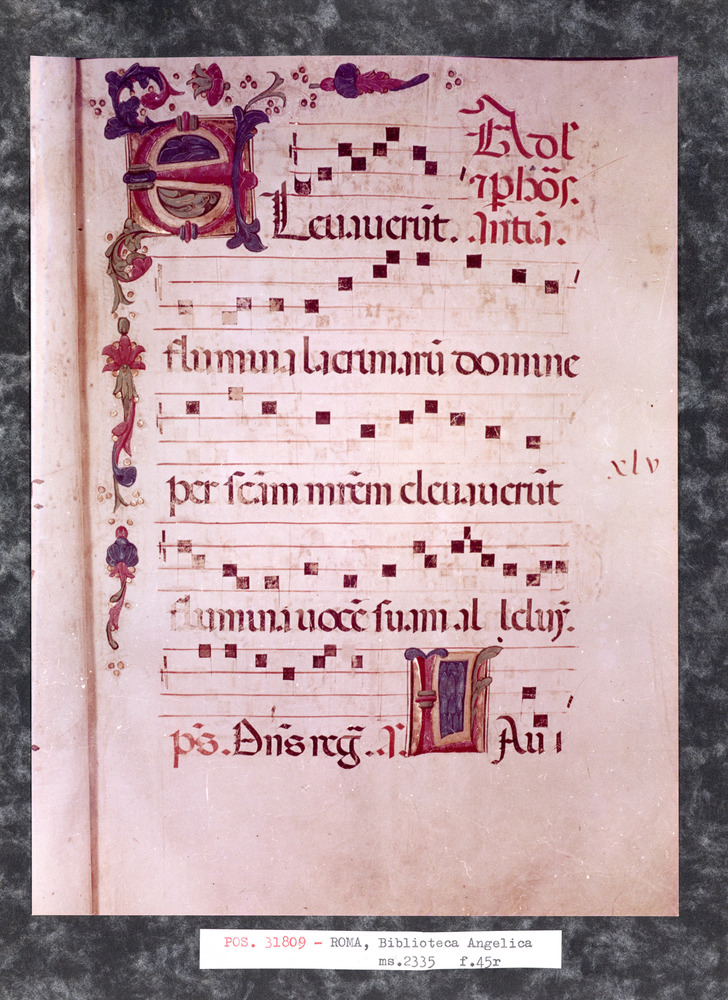 Ad l
⁊ phōs.
Elevaverūt. Antia.
flumina lacrimarū domine
per scām mrēm elevaverūt
flumina vocē suam al leluȳ.
xlv
ps. Dn̄s reg̃. a. M Avi
POS. 31809 - ROMA, Biblioteca Angelica
ms.2335 f.45r